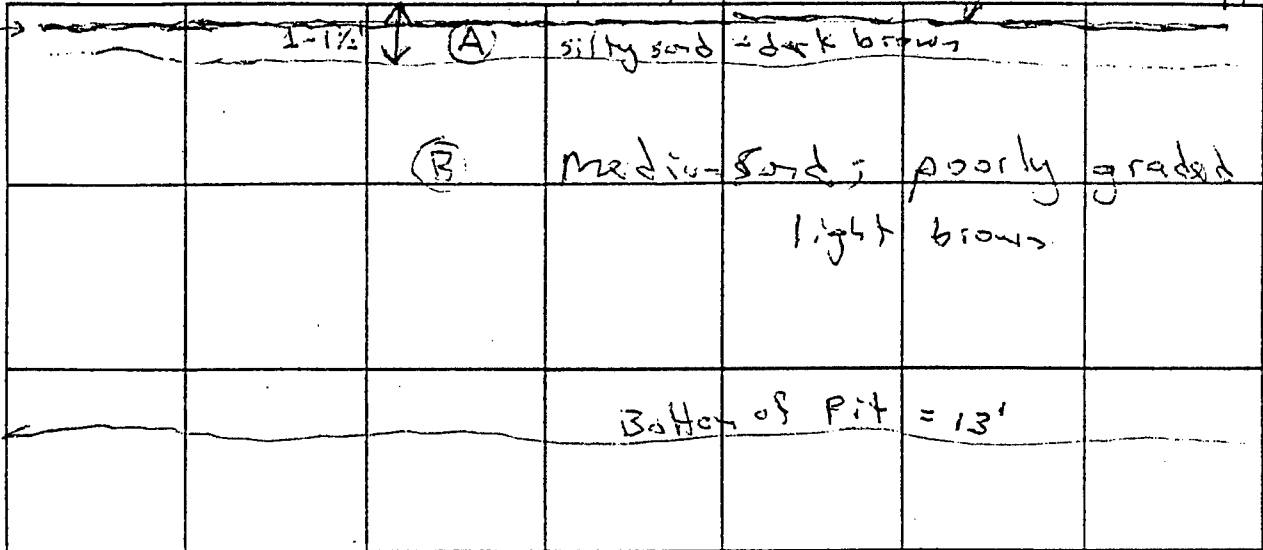 1-1½' Ⓐ silty sand - dark brown
Ⓑ Medium Sand; poorly graded
light brown
Bottom of Pit = 13'